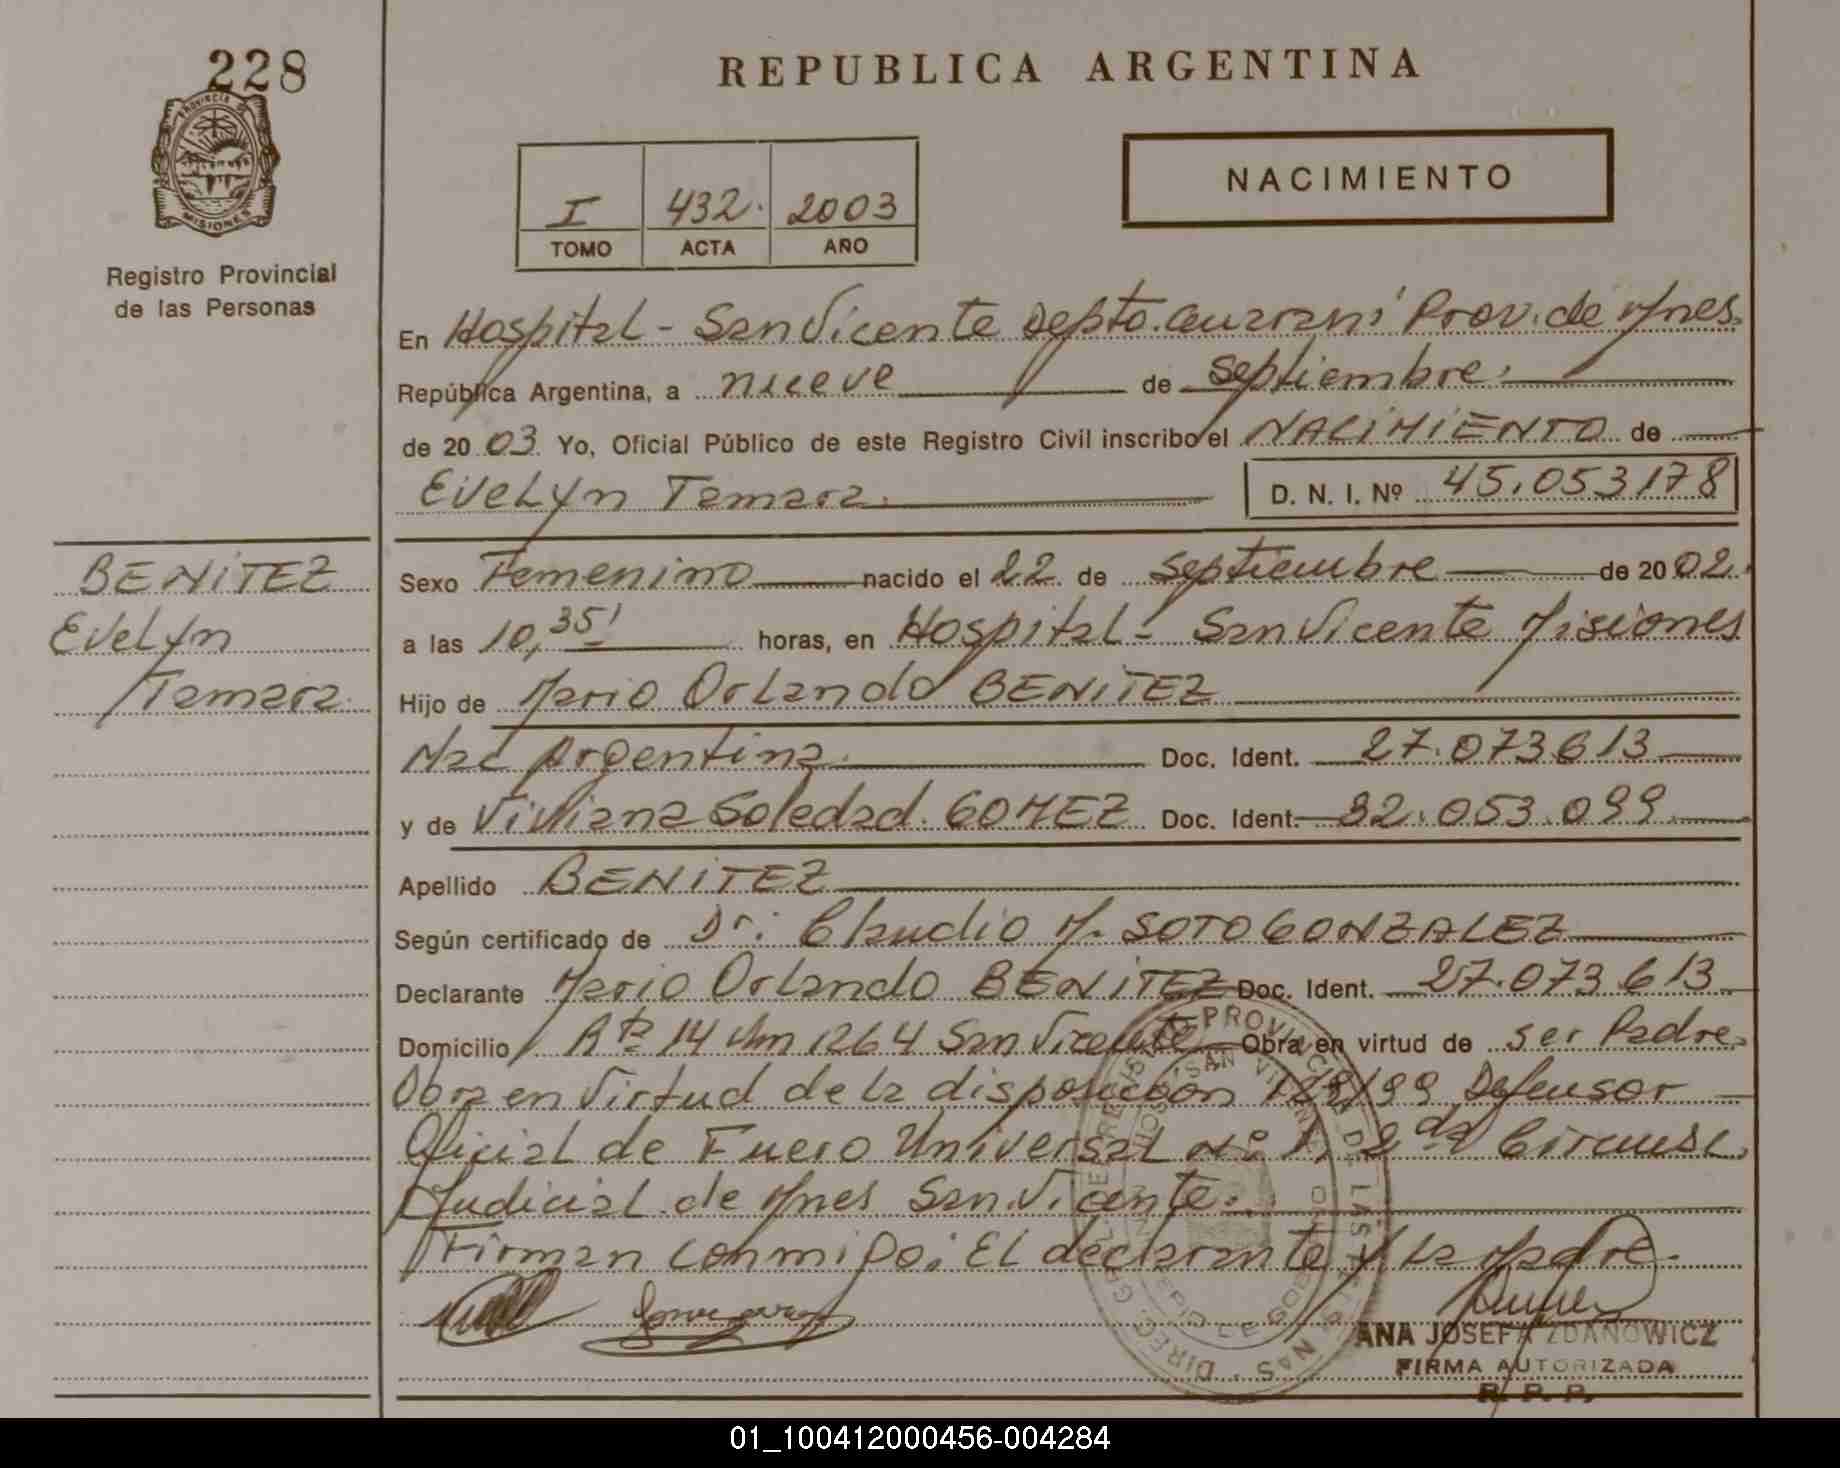 228
REPUBLICA ARGENTINA
PROVINCIA DE
MISIONES
Registro Provincial
de las Personas
I 432. 2003
TOMO ACTA AÑO
NACIMIENTO
En Hospital - San Vicente Depto. Guarani Prov. de Mnes.
República Argentina, a nueve de septiembre.
de 2003. Yo, Oficial Público de este Registro Civil inscribo el NACIMIENTO de
Evelyn Tamara. D. N. I. Nº 45.053.178
BENITEZ
Evelyn
Tamara.
Sexo Femenino nacido el 22 de septiembre de 2002.
a las 10,35' horas, en Hospital - San Vicente Misiones
Hijo de Mario Orlando BENITEZ
Nac Argentina. Doc. Ident. 27.073.613
y de Viviana Soledad. GOMEZ Doc. Ident. 32.053.099
Apellido BENITEZ
Según certificado de Dr. Claudio M. SOTO GONZALEZ
Declarante Mario Orlando BENITEZ Doc. Ident. 27.073.613
Domicilio Rta 14 Km 1264 San Vicente Obra en virtud de ser Padre.
Obra en virtud de la disposicion 128/99 Defensor
Oficial de Fuero Universal Nº 1, 2da Circunsc.
Judicial de Mnes San Vicente.
Firman conmigo: El declarante y la Madre.
ANA JOSEFA ZDANOWICZ
FIRMA AUTORIZADA
R. P. P.
01_100412000456-004284